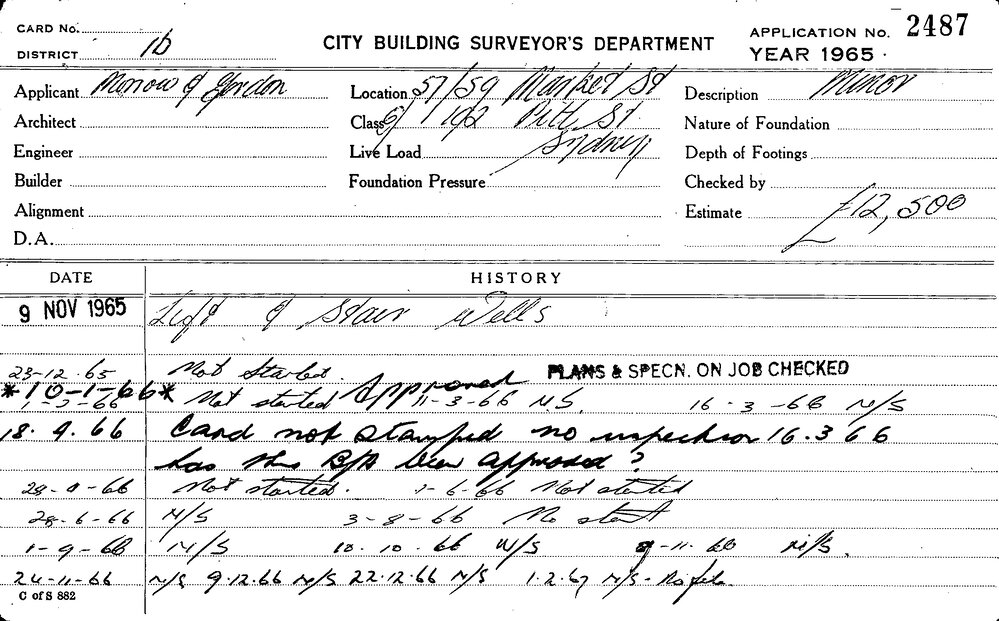 CARD No.
DISTRICT 1b
CITY BUILDING SURVEYOR'S DEPARTMENT
APPLICATION No. 2487
YEAR 1965
Applicant Morrow & Gordon
Location 57/59 Market St
Description Minor
Architect
Class 192 Pitt St
Nature of Foundation
Engineer
Live Load Sydney
Depth of Footings
Builder
Foundation Pressure
Checked by
Alignment
Estimate £12,500
D.A.
DATE HISTORY
9 NOV 1965 Lift & Stair Wells
23-12-65 Not Started. PLANS & SPECN. ON JOB CHECKED
*10-1-66* Approved
1-2-66 Not started 11-3-66 N.S. 16-3-66 N/S
18.4.66 Card not stamped no inspection 16.3 66
has this B/A been approved?
Not started. 1-6-66 Not started
28-6-66 N/S 3-8-66 No start
1-9-66 N/S 10.10.66 N/S 9-11-66 N/S.
24-11-66 N/S 9.12.66 N/S 22.12.66 N/S 1.2.67 N/S-
C of S 882